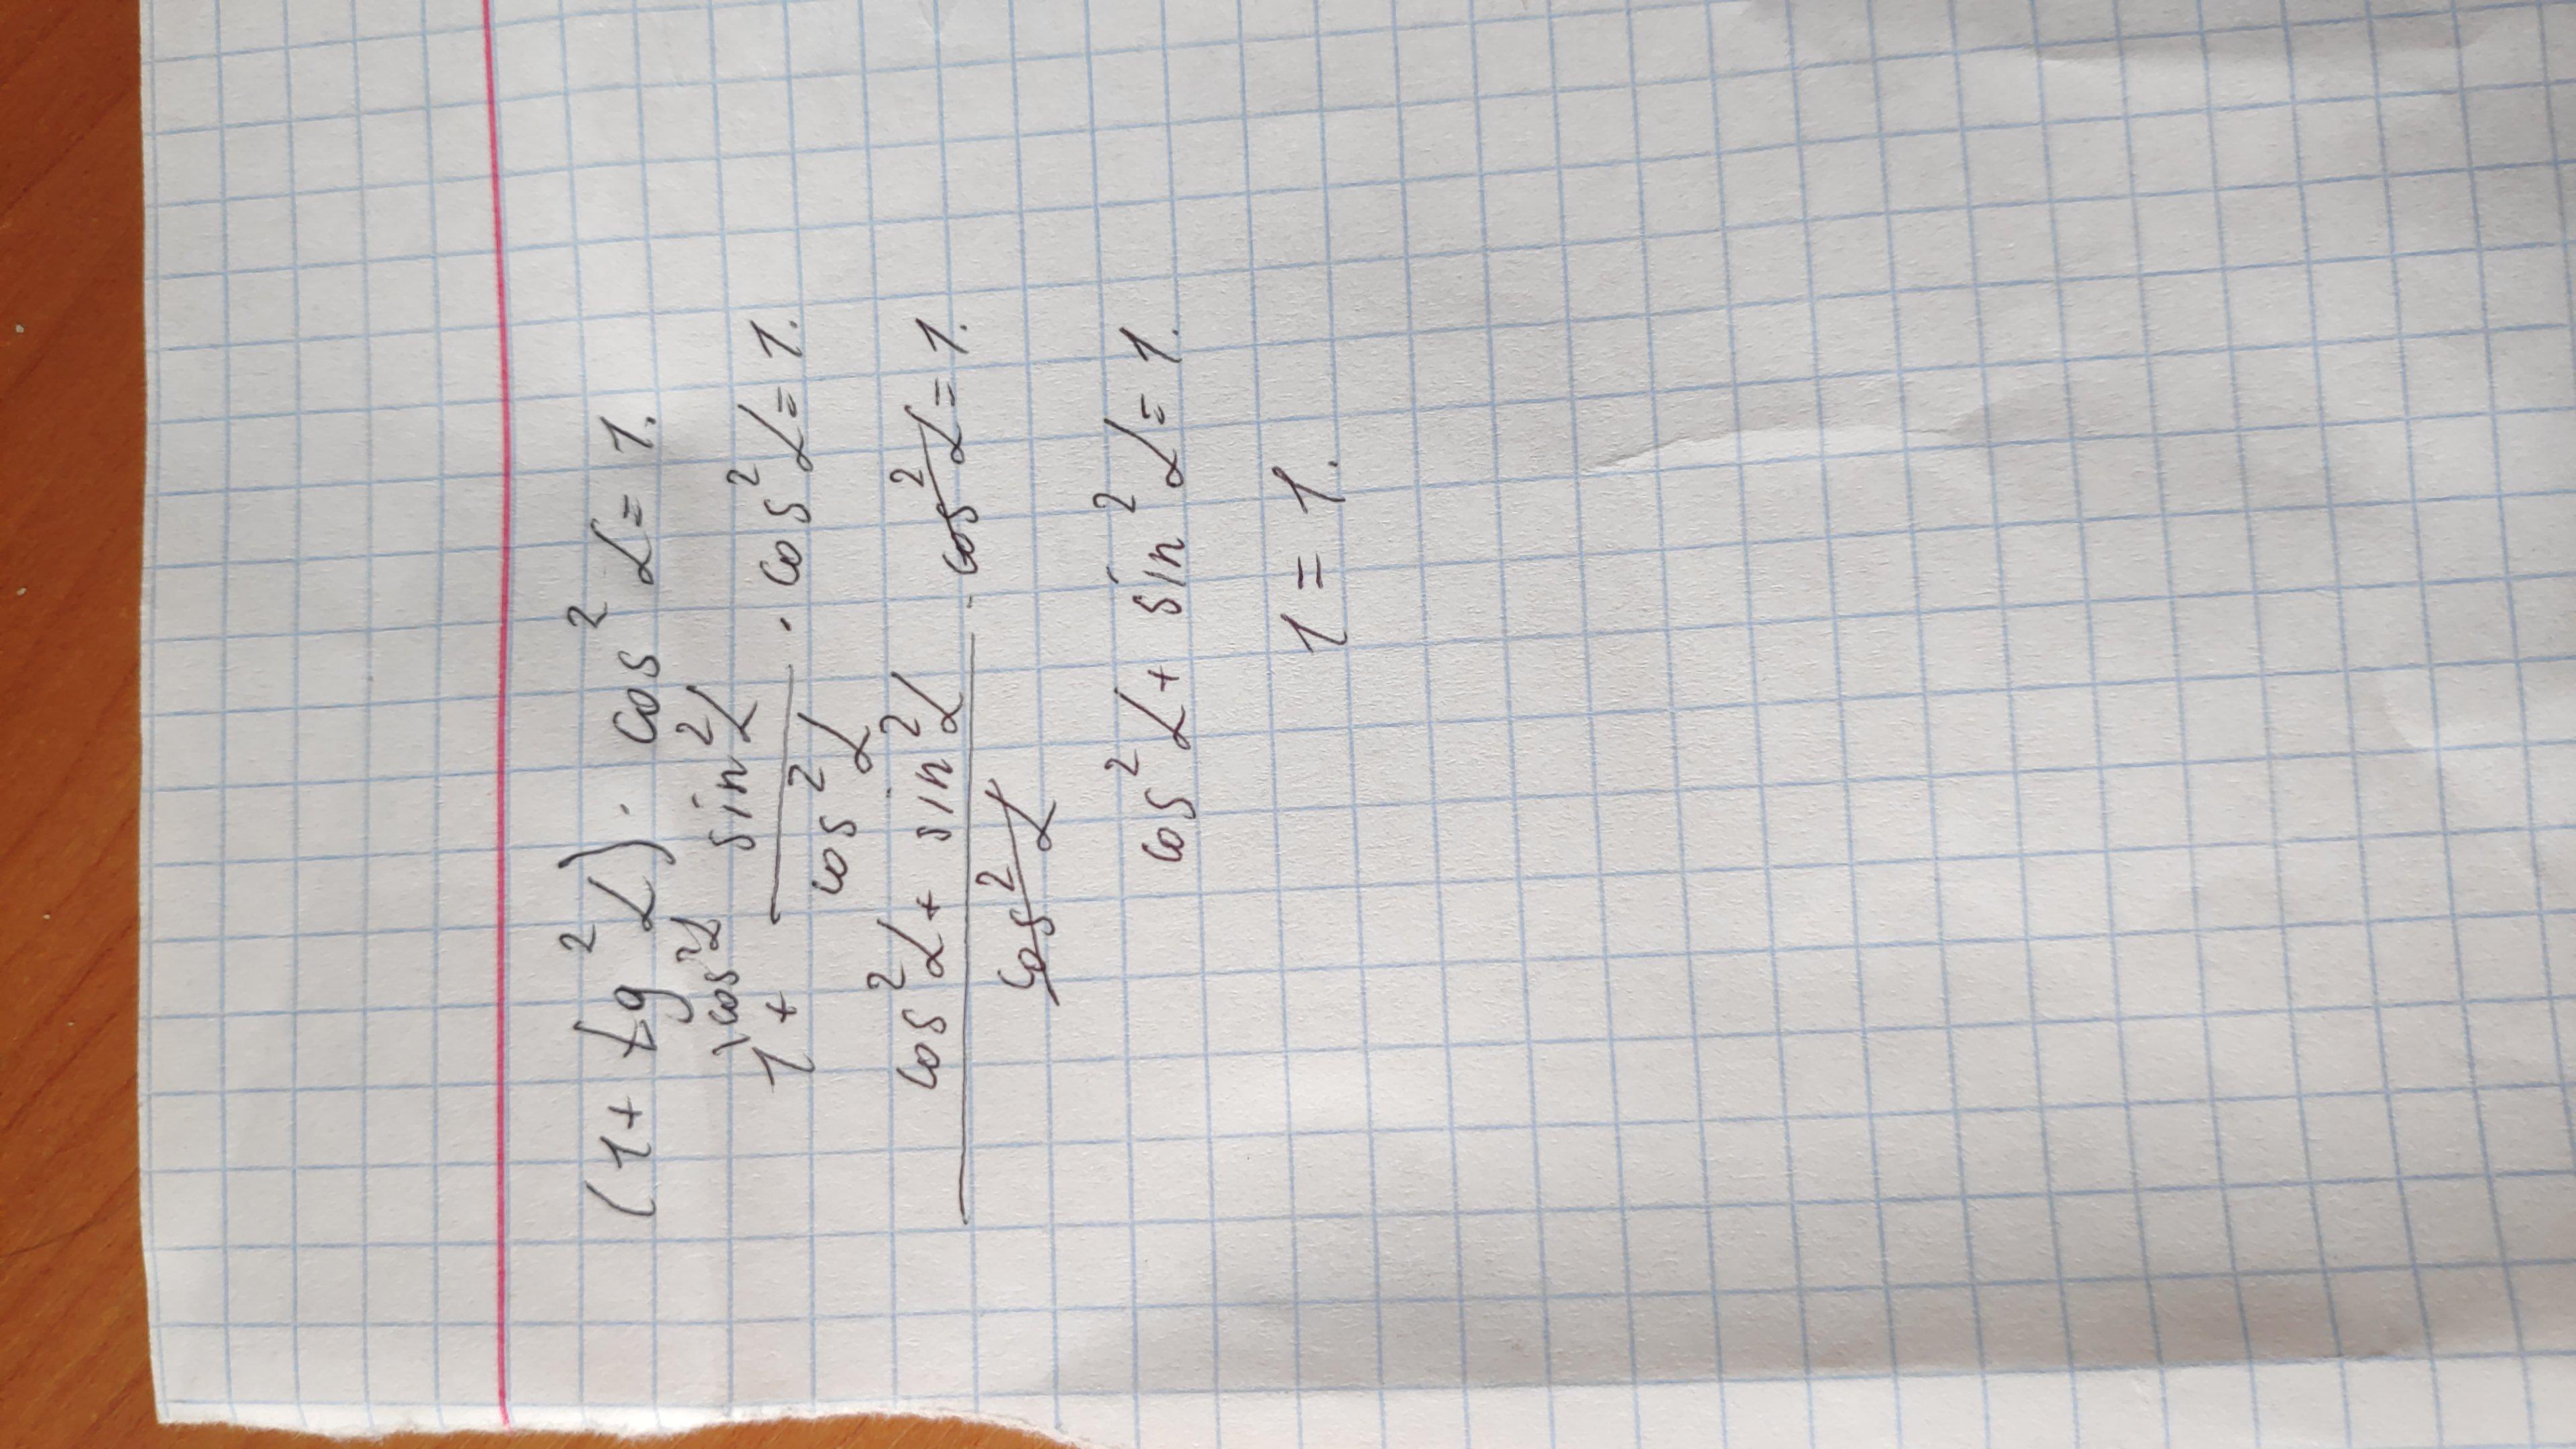 (1 + tg² α) · cos² α = 1.
1\cos²α + sin²α/cos²α · cos²α = 1.
cos²α + sin²α/cos²α · cos²α = 1.
cos²α + sin²α = 1.
1 = 1.